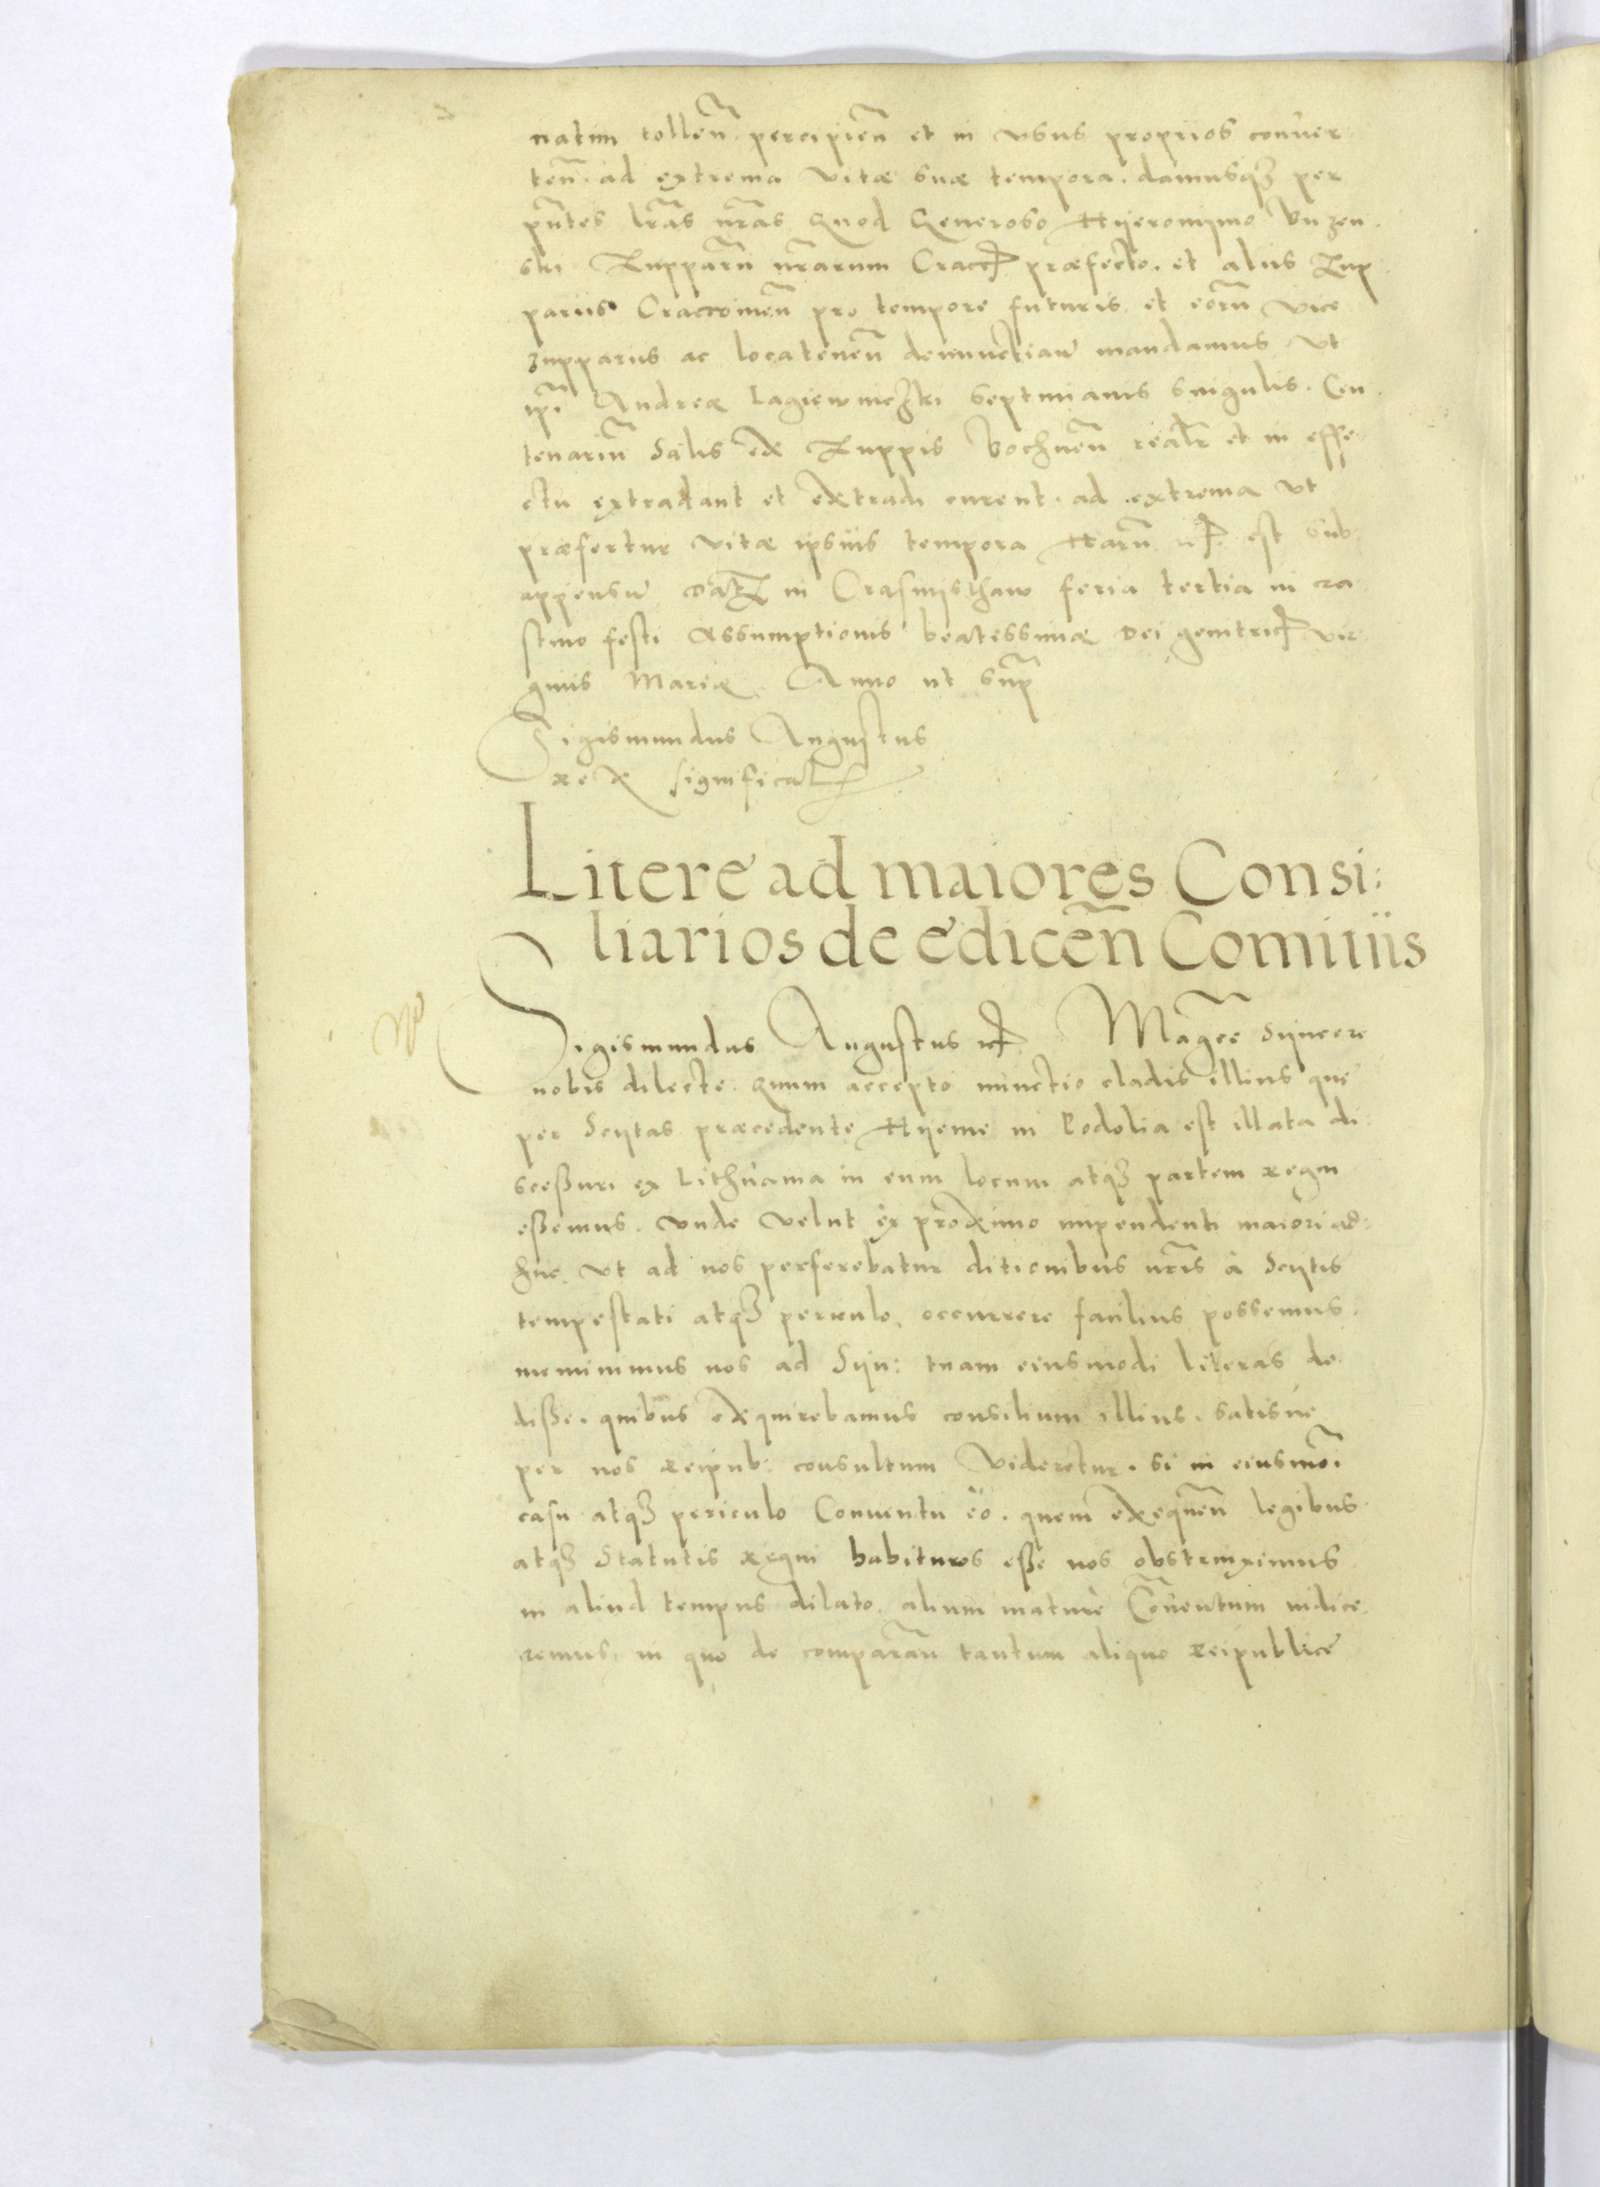 natim tollen̄. percipien̄ et in vsus proprios conuer
ten̄. ad extrema vitæ suæ tempora. damusqȝ per
pn̄tes lr̄as nr̄as Quod Generoso Hyeronymo Buzen
ski Zupparū nr̄arum Cracc̄ præfecto. et aliis Zup
pariis Craccouien̄ pro tempore futuris et eorū vice
zupparius ac locatenen̄ mandamus vt
ip̄i Andreæ Lagiewniczki septimanis singulis. Cen
tenariū Salis ex Zuppis Bochnen̄ realr̄ et in effe
ctu extradant et extradi curent. ad extrema vt
præfertur vitæ ipsius tempora Harū est sub
appensū Datȝ in Crasnijsthaw feria tertia in cra
stino festi Assumptionis beatissimæ Dei genitric̄ vir
ginis Mariæ. Anno ut supr̄
Sigismundus Augustus
rex significat
Litere ad maiores Consi:
liarios de edicen̄ Comitiis
Sigismundus Augustus Mag̅ce Syncere
nobis dilecte. Quum accepto nunctio cladis illius que
per Scytas præcedente Hyeme in Podolia est illata di
scessuri ex Lithuania in eum locum atqȝ partem regni
essemus. vnde velut ex proximo impendenti maiori ad
huc vt ad nos perferebatur ditionibus nr̄is à Scytis
tempestati atqȝ periculo, occurrere facilius possemus.
meminimus nos ad Syn: tuam eiusmodi literas de
disse. quibus exquirebamus consilium illius. satisne
per nos reipub: consultum videretur. si in eiusmōi
casu atqȝ periculo Conuentu eo. quem exequen̄ legibus
atqȝ Statutis regni habituros esse nos obstrinximus
in aliud tempus dilato. alium mature Cōuentum indice
remus, in quo de comparan̄ tantum aliquo reipublice